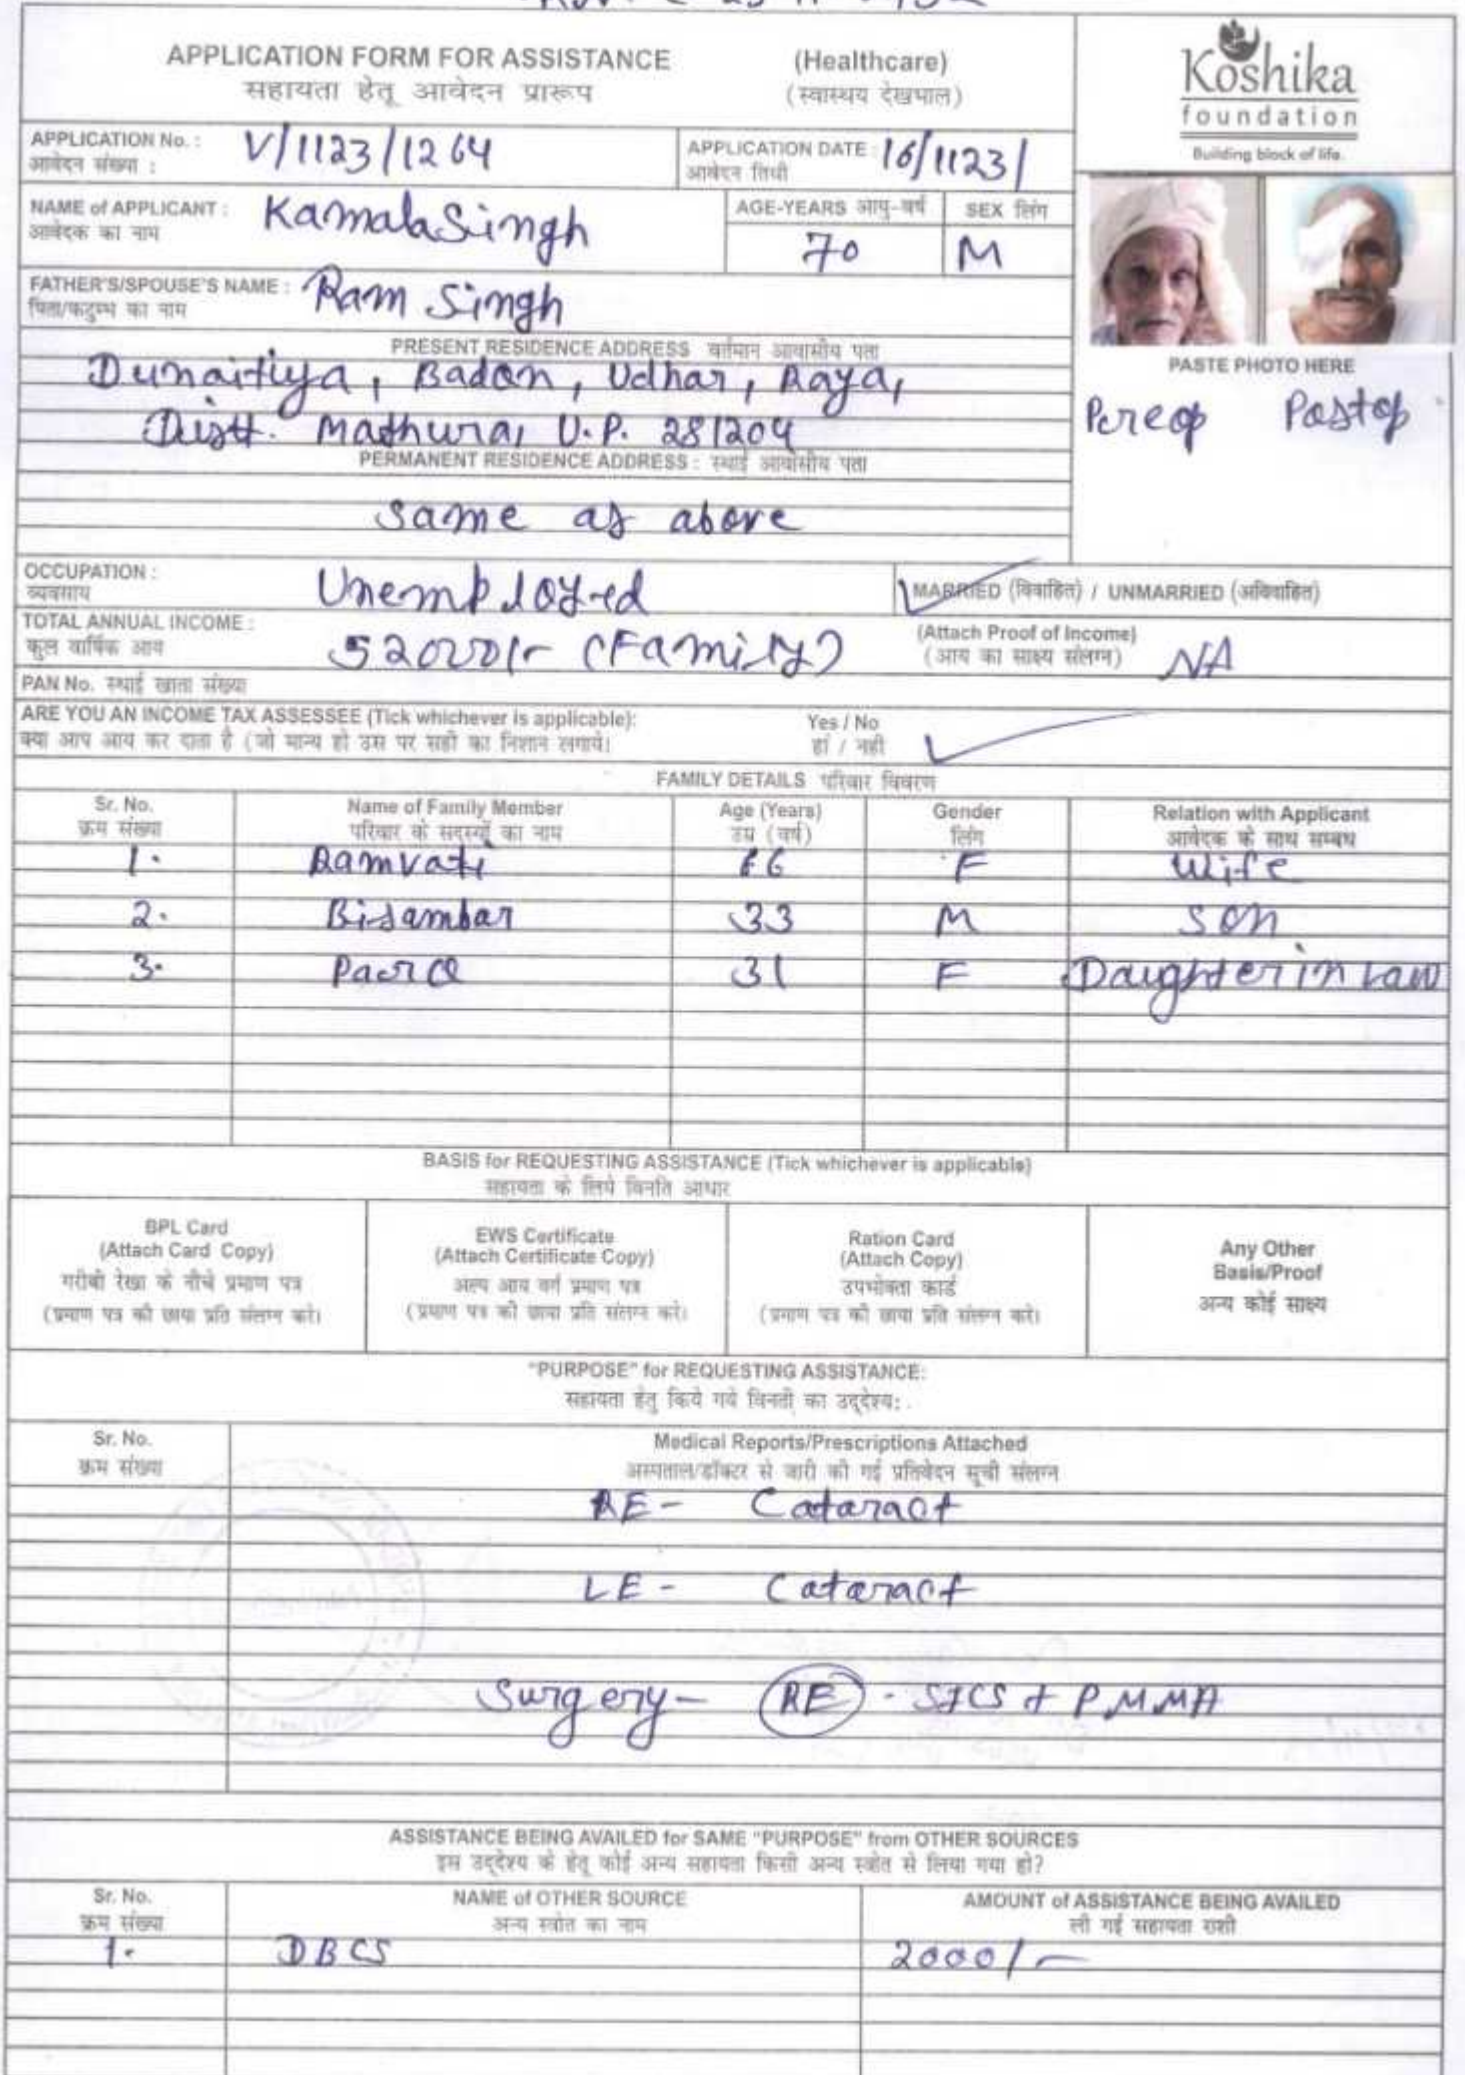 APPLICATION FORM FOR ASSISTANCE (Healthcare)
सहायता हेतू आवेदन प्रारूप (स्वास्थय देखभाल)
Koshika
foundation
Building block of life.
APPLICATION No. : V/1123/1264
आवेदन संख्या :
APPLICATION DATE : 16/1123/
आवेदन तिथी
NAME of APPLICANT : Kamala Singh
आवेदक का नाम
AGE-YEARS आयु-वर्ष SEX लिंग
70 M
FATHER'S/SPOUSE'S NAME : Ram Singh
पिता/कटुम्ब का नाम
PRESENT RESIDENCE ADDRESS वर्तमान आवासीय पता
Dunaitiya, Badan, Udhar, Raya,
Distt. Mathura, U.P. 281204
PERMANENT RESIDENCE ADDRESS : स्थाई आवासीय पता
Same as above
PASTE PHOTO HERE
Pereop Postop
OCCUPATION : Unemployed
व्यवसाय
MARRIED (विवाहित) / UNMARRIED (अविवाहित)
TOTAL ANNUAL INCOME : 52000/- (Family)
कुल वार्षिक आय
(Attach Proof of Income) NA
(आय का साक्ष्य संलग्न)
PAN No. स्थाई खाता संख्या
ARE YOU AN INCOME TAX ASSESSEE (Tick whichever is applicable): Yes / No
क्या आप आय कर दाता है (जो मान्य हो उस पर सही का निशान लगाये। हां / नही
FAMILY DETAILS परिवार विवरण
Sr. No. Name of Family Member Age (Years) Gender Relation with Applicant
क्रम संख्या परिवार के सदस्यों का नाम उम्र (वर्ष) लिंग आवेदक के साथ सम्बध
1. Ramvati 66 F Wife
2. Bisambar 33 M Son
3. 31 F Daughter in Law
BASIS for REQUESTING ASSISTANCE (Tick whichever is applicable)
सहायता के लिये विनति आधार
BPL Card
(Attach Card Copy)
गरीबी रेखा के नीचे प्रमाण पत्र
(प्रमाण पत्र की छाया प्रति संलग्न करे।
EWS Certificate
(Attach Certificate Copy)
अल्प आय वर्ग प्रमाण पत्र
(प्रमाण पत्र की छाया प्रति संलग्न करे।
Ration Card
(Attach Copy)
उपभोक्ता कार्ड
(प्रमाण पत्र की छाया प्रति संलग्न करे।
Any Other
Basis/Proof
अन्य कोई साक्ष्य
"PURPOSE" for REQUESTING ASSISTANCE:
सहायता हेतु किये गये विनती का उद्देश्य:
Sr. No. Medical Reports/Prescriptions Attached
क्रम संख्या अस्पताल/डॉक्टर से जारी की गई प्रतिवेदन सूची संलग्न
RE- Cataract
LE- Cataract
Surgery- RE - SICS + PMMA
ASSISTANCE BEING AVAILED for SAME "PURPOSE" from OTHER SOURCES
इस उद्देश्य के हेतू कोई अन्य सहायता किसी अन्य स्त्रोत से लिया गया हो?
Sr. No. NAME of OTHER SOURCE AMOUNT of ASSISTANCE BEING AVAILED
क्रम संख्या अन्य स्त्रोत का नाम ली गई सहायता राशी
1. DBCS 2000/-